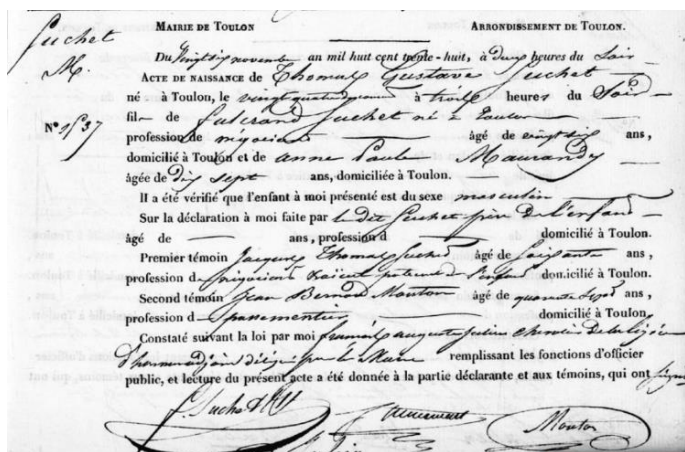 Suchet
M.
Nº 1537
MAIRIE DE TOULON ARRONDISSEMENT DE TOULON.
Du Vingt six novembre an mil huit cent trente-huit, à deux heures du Soir
ACTE DE NAISSANCE de Thomas Gustave Suchet
né à Toulon, le vingt quatre à trois heures du Soir
fils de Suchet né à Toulon
profession de négociant âgé de vingt six ans,
domicilié à Toulon et de anne Paule Maurandy
âgée de dix sept ans, domiciliée à Toulon.
Il a été vérifié que l'enfant à moi présenté est du sexe masculin
Sur la déclaration à moi faite par le dit Suchet père de l'enfant
âgé de ans, profession d domicilié à Toulon.
Premier témoin Jacques Thomas Suchet âgé de soixante ans,
profession de négociant domicilié à Toulon.
Second témoin Jean Bernard Mouton âgé de quarante sept ans,
profession d domicilié à Toulon.
Constaté suivant la loi par moi françois auguste chevalier de la légion
d'honneur par le Maire remplissant les fonctions d'officier
public, et lecture du présent acte a été donnée à la partie déclarante et aux témoins, qui ont signé
Mouton